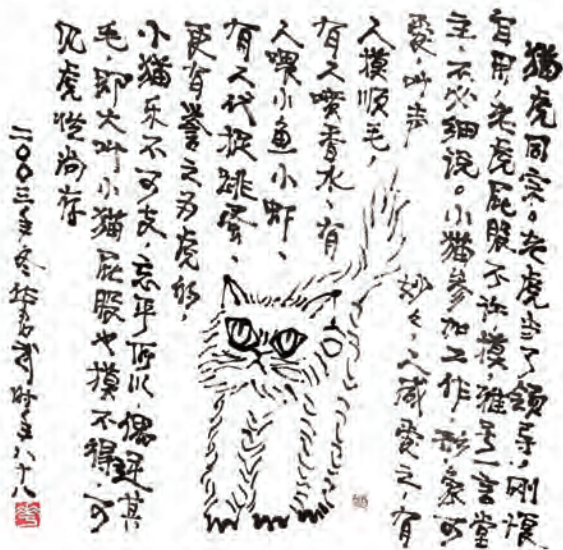 猫虎同宗。老虎当了领导，刚愎
自用，老虎屁股不许摸，雅号一言堂
主，不必细说。小猫参加工作，形象可
爱，叫声妙々，人咸爱之，有
人摸顺毛，
有人喷香水，有
人喂小鱼小虾、
有人代捉跳蚤、
更有誉之为虎形，
小猫乐不可支，忘乎所以，偶逆其
毛，即大叫小猫屁股也摸不得，可
见虎性尚存
二〇〇三年冬华君武时年八十八